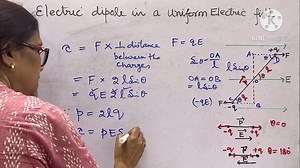 Electric dipole in a Uniform Electric fi
τ = F × ⊥ distance
between the
charges
= F × 2 l sinθ
= qE 2 l sinθ
p = 2lq
τ = pE s
F = qE
sinθ = OA
l
OA = OB =
l sinθ
(-qE)
A
B
-q
θ = 0
θ = 180°